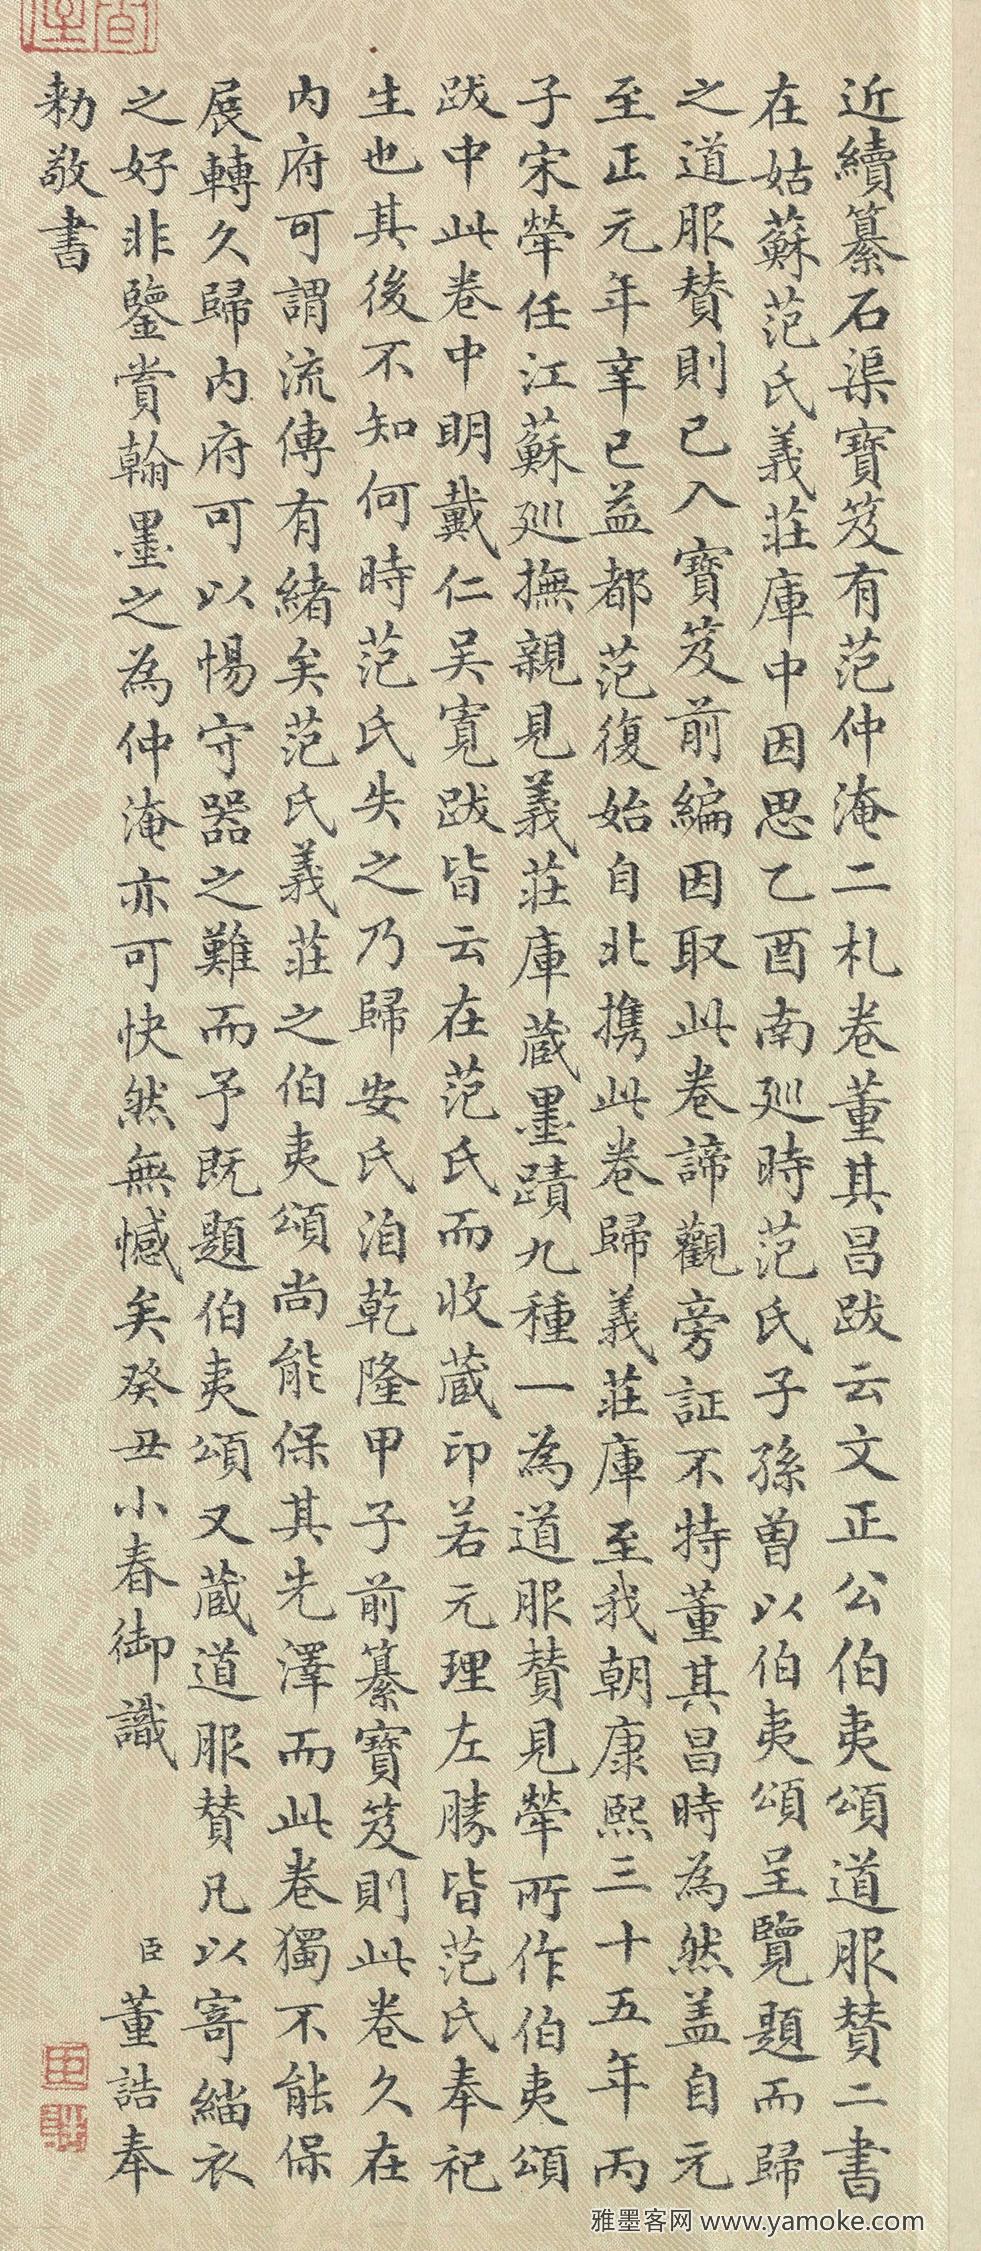 近續纂石渠寶笈有范仲淹二札卷董其昌跋云文正公伯夷頌道服贊二書
在姑蘇范氏義莊庫中因思乙酉南廵時范氏子孫曾以伯夷頌呈覽題而歸
之道服贊則已入寶笈前編因取此卷諦觀旁証不特董其昌時為然盖自元
至正元年辛巳益都范復始自北携此卷歸義莊庫至我朝康熙三十五年丙
子宋犖任江蘇廵撫親見義莊庫蔵墨蹟九種一為道服贊見犖所作伯夷頌
跋中此卷中明戴仁吴寬跋皆云在范氏而收蔵印若元理左勝皆范氏奉祀
生也其後不知何時范氏失之乃歸安氏洎乾隆甲子前纂寶笈則此卷久在
内府可謂流傳有緒矣范氏義莊之伯夷頌尚能保其先澤而此卷獨不能保
展轉久歸内府可以惕守器之難而予既題伯夷頌又蔵道服贊凡以寄緇衣
之好非鑒賞翰墨之為仲淹亦可快然無憾矣癸丑小春御識
臣董誥奉
勅敬書
雅墨客网 www.yamoke.com